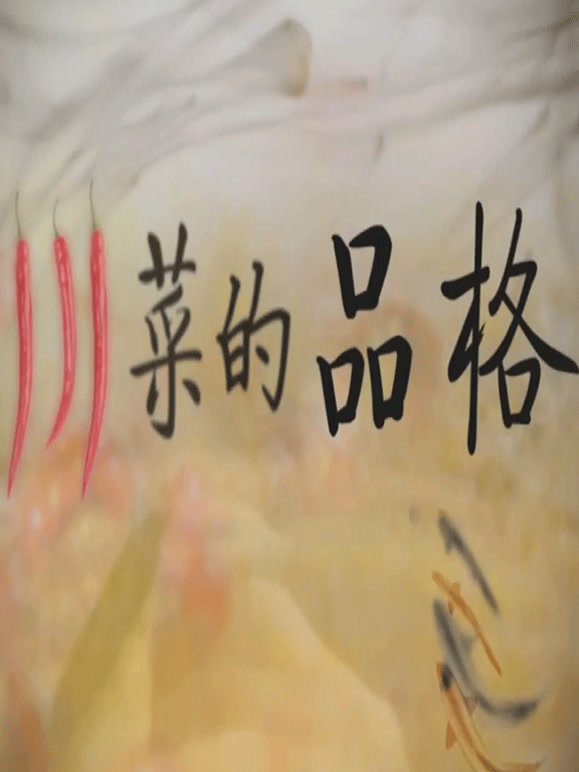 川菜的品格